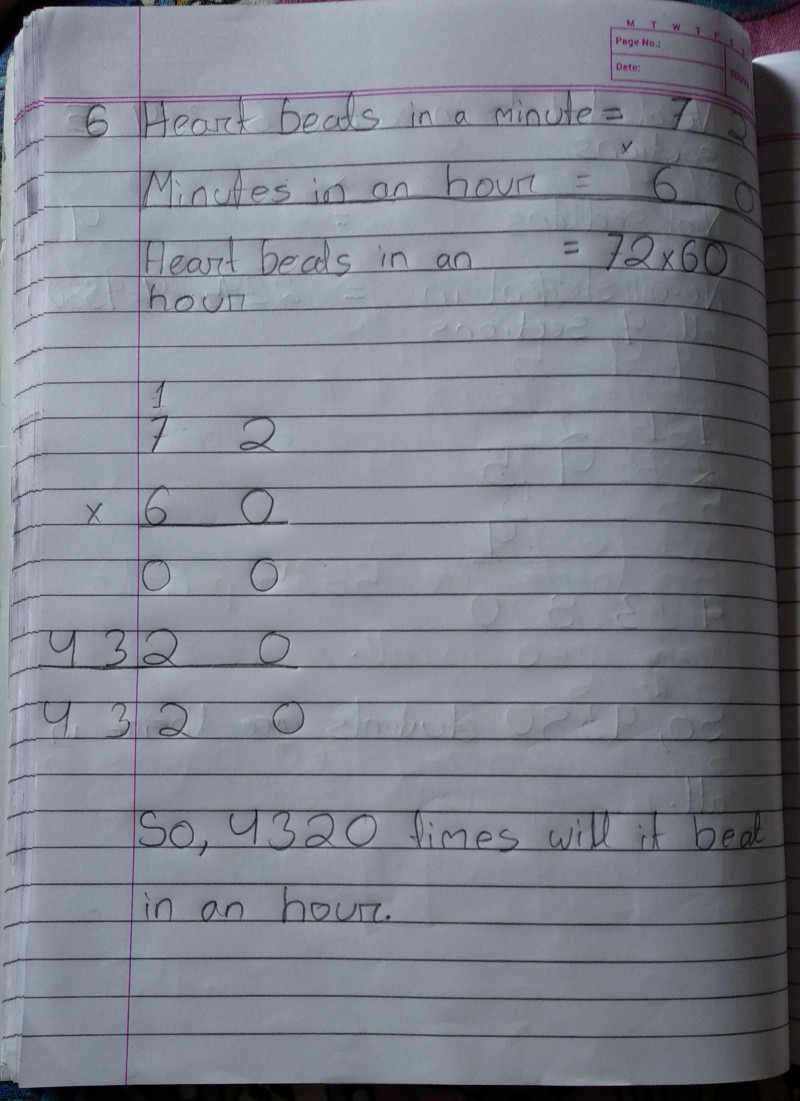 M T W T F S S
Page No.:
Date:
YOUVA
6 Heart beats in a minute = 7 2
x
Minutes in an hour = 6 0
Heart beats in an = 72x60
hour
1
7 2
x 6 0
0 0
4 3 2 0
4 3 2 0
So, 4320 times will it beat
in an hour.